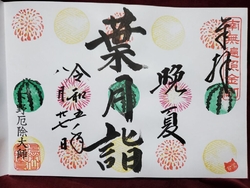 奉拝
晩夏
葉月詣
令和五年
八月廿七日
厄除大師